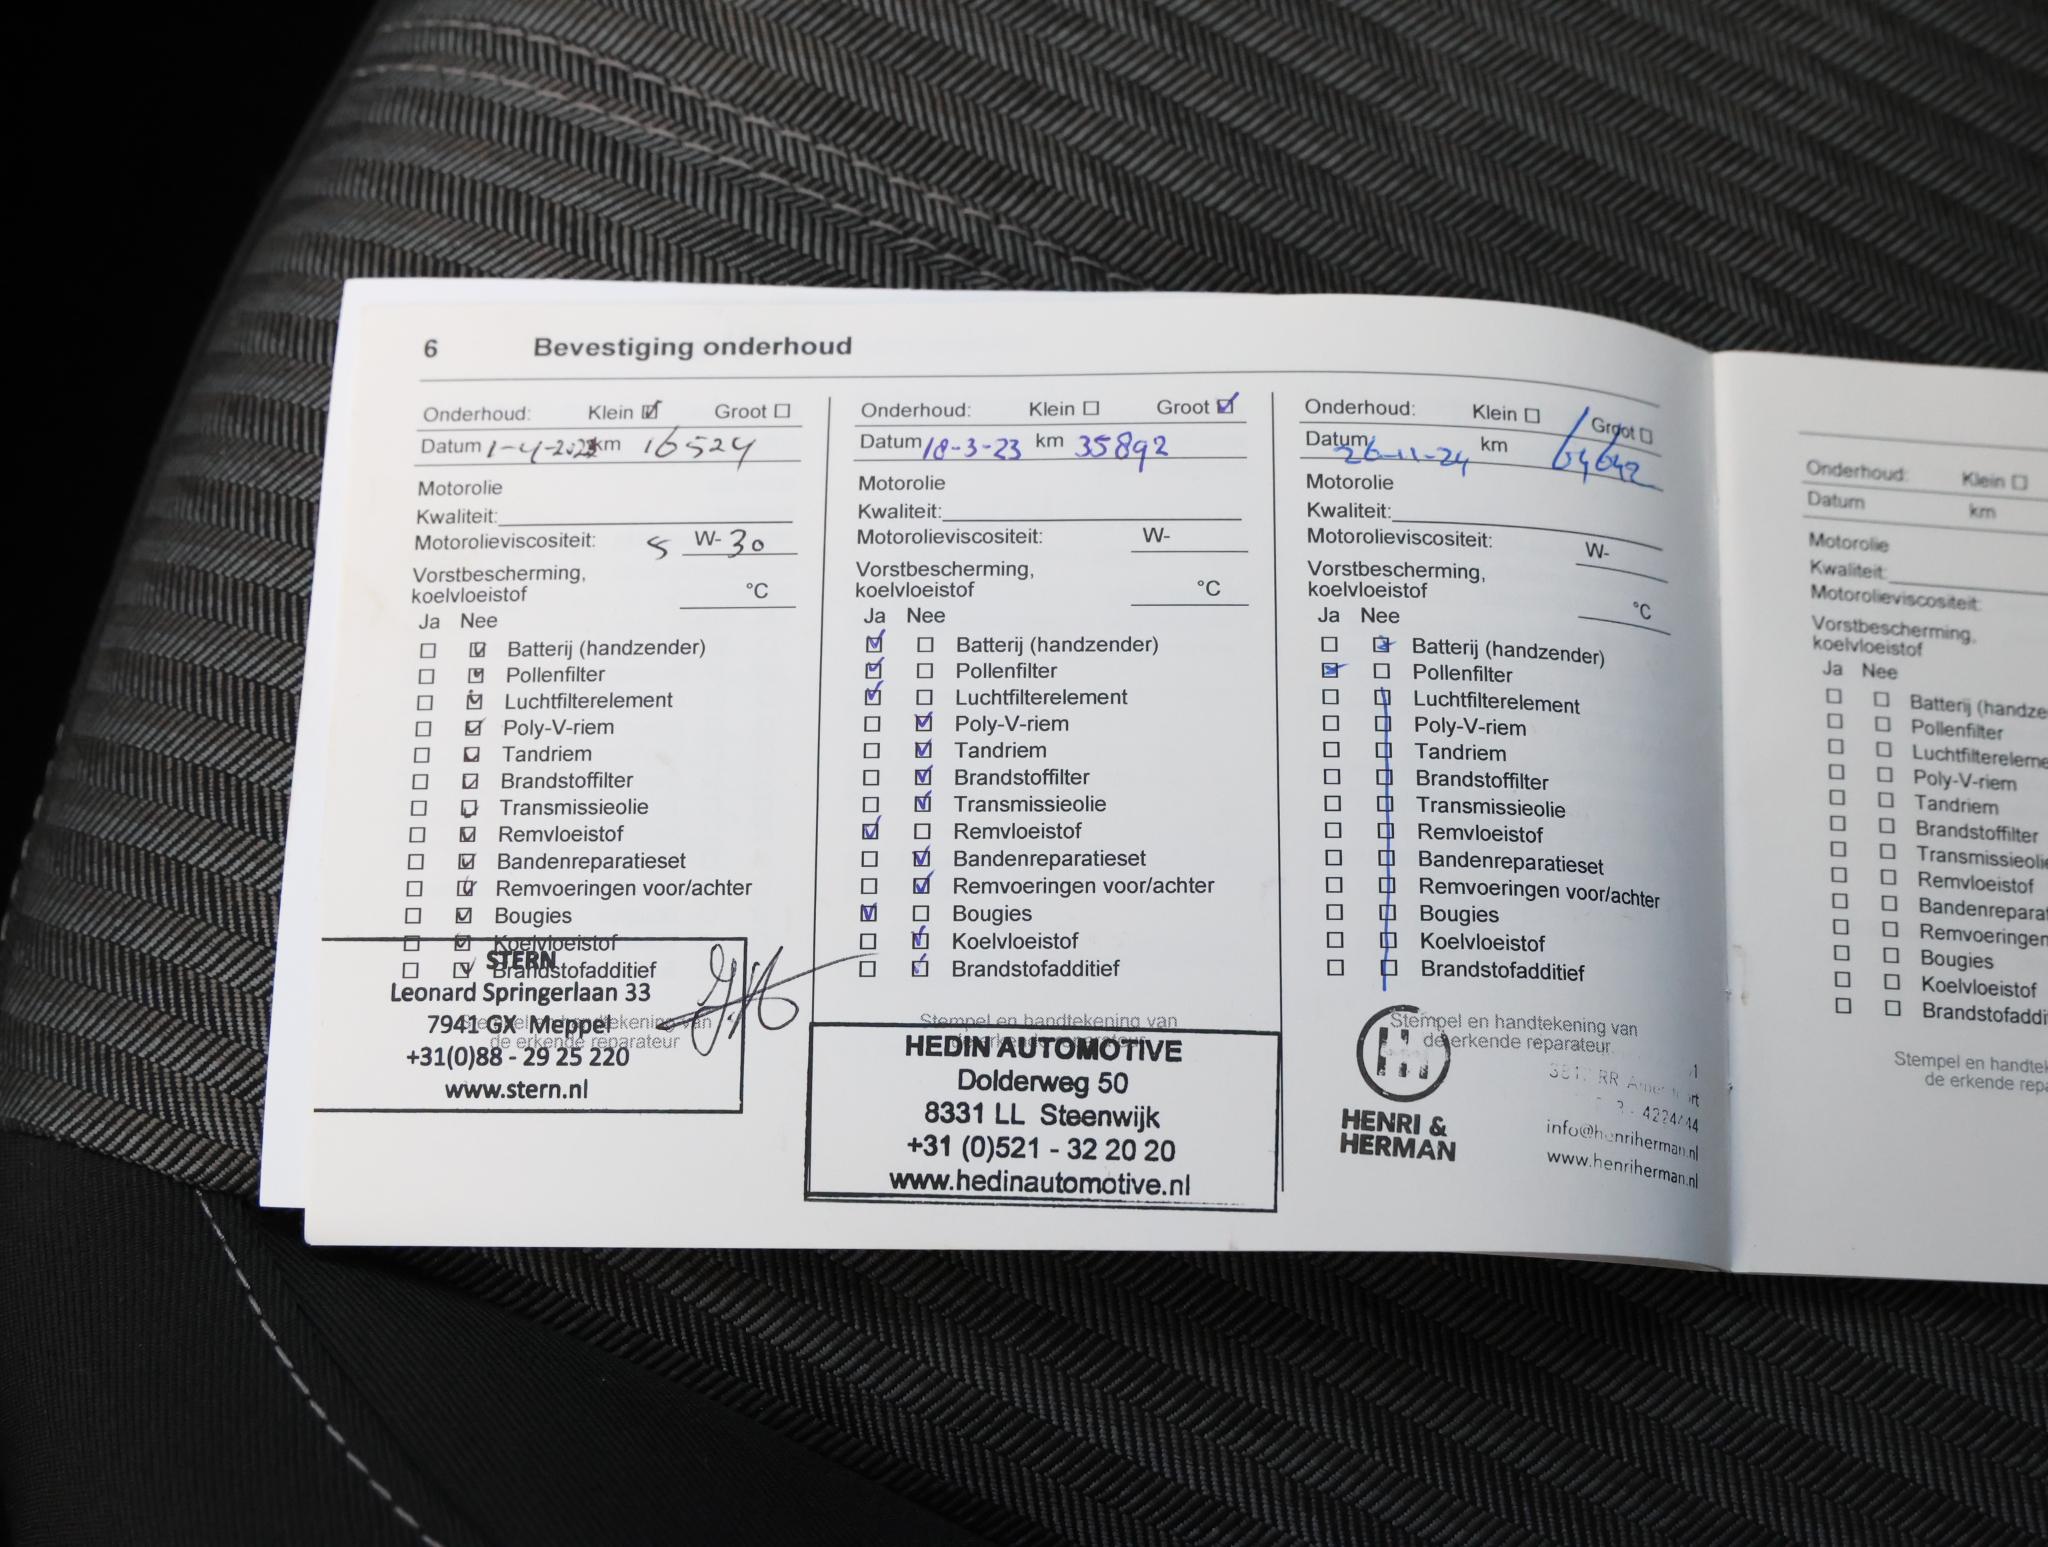 6 Bevestiging onderhoud
Onderhoud: Klein Groot
Datum 1-4-2022 km 16524
Motorolie
Kwaliteit:
Motorolieviscositeit: 5 W- 30
Vorstbescherming,
koelvloeistof °C
Ja Nee
Batterij (handzender)
Pollenfilter
Luchtfilterelement
Poly-V-riem
Tandriem
Brandstoffilter
Transmissieolie
Remvloeistof
Bandenreparatieset
Remvoeringen voor/achter
Bougies
Koelvloeistof
Brandstofadditief
Stempel en handtekening van
de erkende reparateur
STERN
Leonard Springerlaan 33
7941 GX Meppel
+31(0)88 - 29 25 220
www.stern.nl
Onderhoud: Klein Groot
Datum 18-3-23 km 35892
Motorolie
Kwaliteit:
Motorolieviscositeit: W-
Vorstbescherming,
koelvloeistof °C
Ja Nee
Batterij (handzender)
Pollenfilter
Luchtfilterelement
Poly-V-riem
Tandriem
Brandstoffilter
Transmissieolie
Remvloeistof
Bandenreparatieset
Remvoeringen voor/achter
Bougies
Koelvloeistof
Brandstofadditief
Stempel en handtekening van
de erkende reparateur
HEDIN AUTOMOTIVE
Dolderweg 50
8331 LL Steenwijk
+31 (0)521 - 32 20 20
www.hedinautomotive.nl
Onderhoud: Klein Groot
Datum 26-11-24 km 64642
Motorolie
Kwaliteit:
Motorolieviscositeit: W-
Vorstbescherming,
koelvloeistof °C
Ja Nee
Batterij (handzender)
Pollenfilter
Luchtfilterelement
Poly-V-riem
Tandriem
Brandstoffilter
Transmissieolie
Remvloeistof
Bandenreparatieset
Remvoeringen voor/achter
Bougies
Koelvloeistof
Brandstofadditief
Stempel en handtekening van
de erkende reparateur
HENRI &
HERMAN
info@henriherman.nl
www.henriherman.nl
Onderhoud: Klein
Datum km
Motorolie
Kwaliteit:
Motorolieviscositeit:
Vorstbescherming,
koelvloeistof
Ja Nee
Batterij (handze
Pollenfilter
Luchtfiltereleme
Poly-V-riem
Tandriem
Brandstoffilter
Transmissieolie
Remvloeistof
Bandenreparat
Remvoeringen
Bougies
Koelvloeistof
Brandstofaddi
Stempel en handtek
de erkende repa